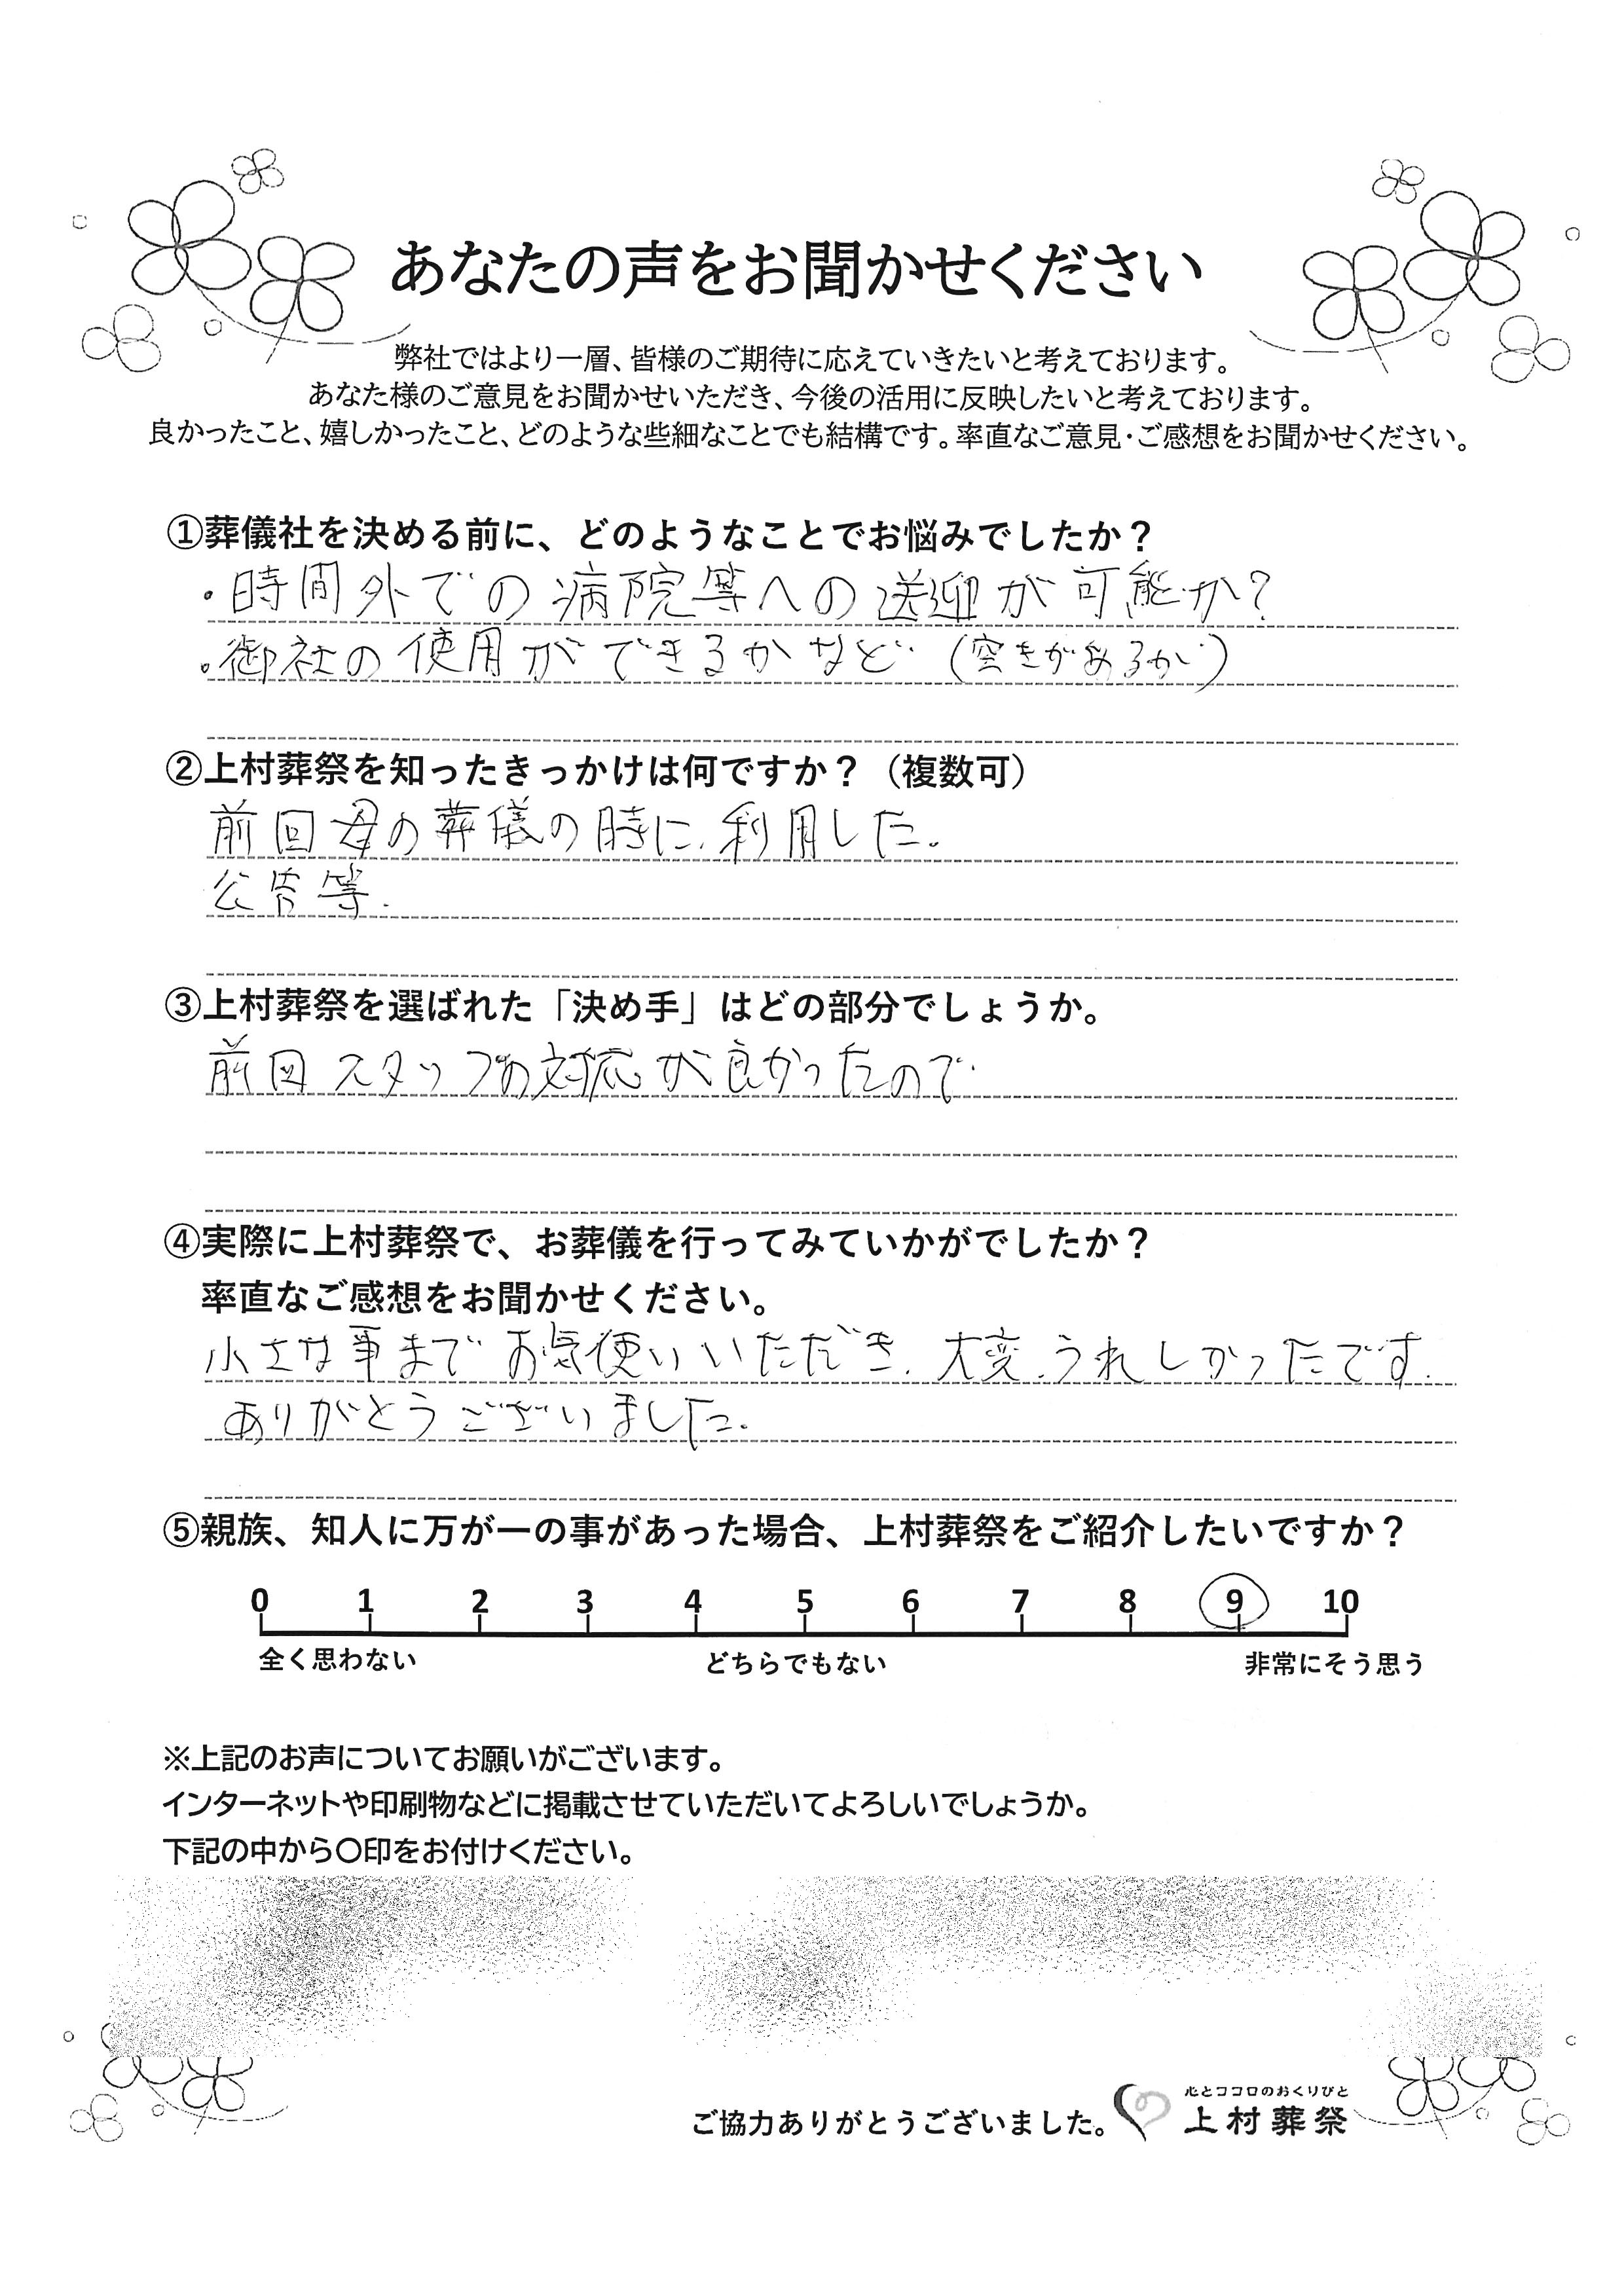 あなたの声をお聞かせください
弊社ではより一層、皆様のご期待に応えていきたいと考えております。
あなた様のご意見をお聞かせいただき、今後の活用に反映したいと考えております。
良かったこと、嬉しかったこと、どのような些細なことでも結構です。率直なご意見・ご感想をお聞かせください。
①葬儀社を決める前に、どのようなことでお悩みでしたか？
・時間外での病院等への送迎が可能か？
・御社の使用ができるかなど（空きがあるか）
②上村葬祭を知ったきっかけは何ですか？（複数可）
前回母の葬儀の時に、利用した。
公告等.
③上村葬祭を選ばれた「決め手」はどの部分でしょうか。
前回スタッフの対応が良かったので
④実際に上村葬祭で、お葬儀を行ってみていかがでしたか？
率直なご感想をお聞かせください。
小さな事までお気使いいただき、大変、うれしかったです.
ありがとうございました。
⑤親族、知人に万が一の事があった場合、上村葬祭をご紹介したいですか？
0 1 2 3 4 5 6 7 8 9 10
全く思わない どちらでもない 非常にそう思う
※上記のお声についてお願いがございます。
インターネットや印刷物などに掲載させていただいてよろしいでしょうか。
下記の中から〇印をお付けください。
心とココロのおくりびと
ご協力ありがとうございました。 上村葬祭